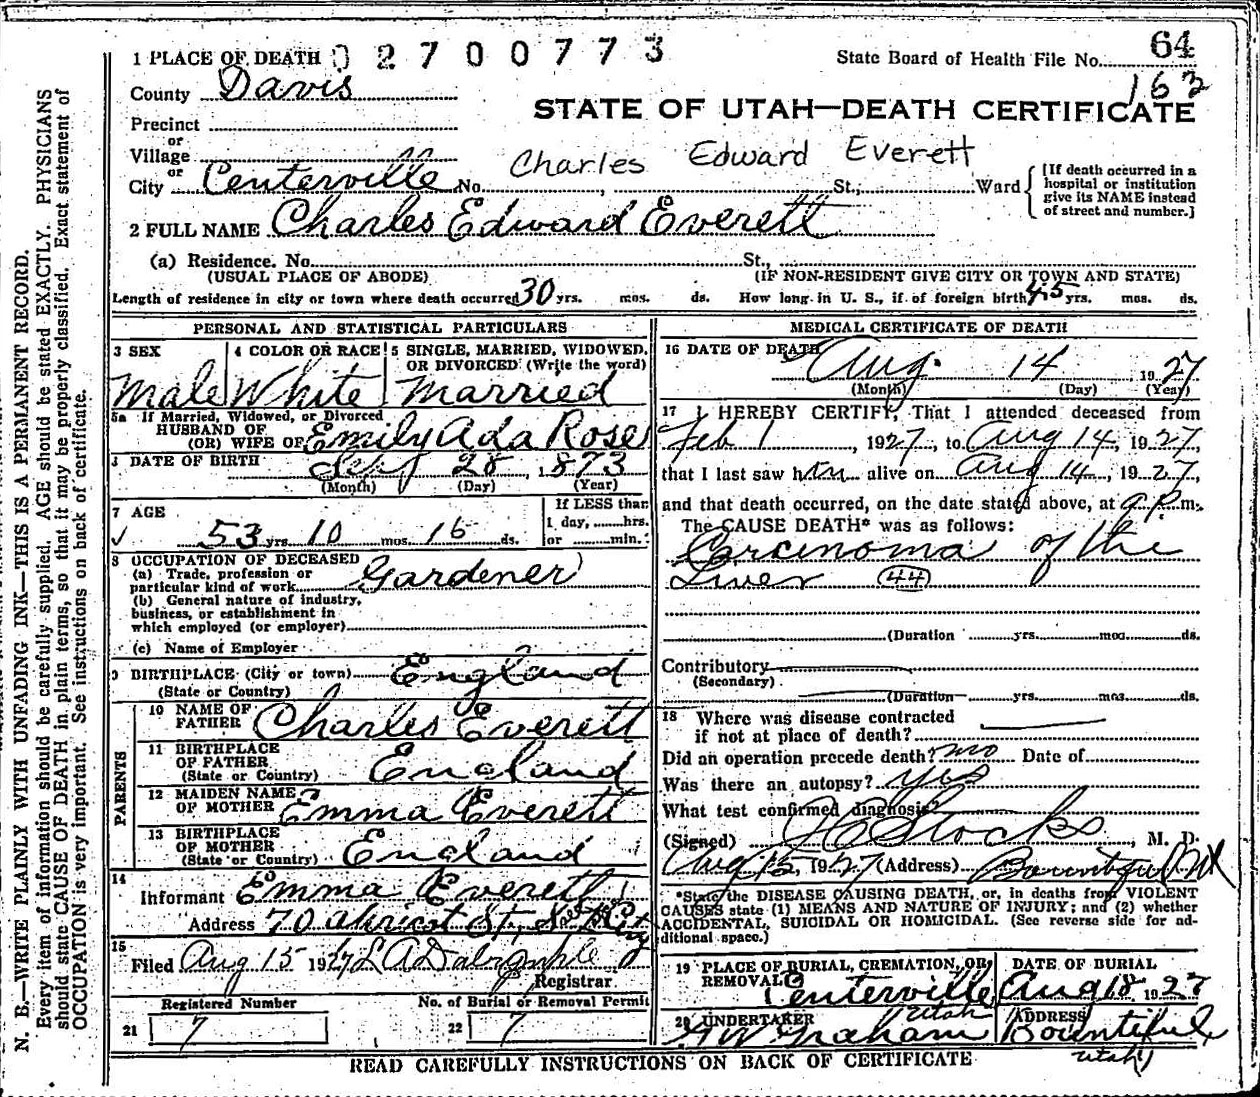 N. B.—WRITE PLAINLY WITH UNFADING INK—THIS IS A PERMANENT RECORD.
Every item of information should be carefully supplied. AGE should be stated EXACTLY. PHYSICIANS
should state CAUSE OF DEATH in plain terms, so that it may be properly classified. Exact statement of
OCCUPATION is very important. See instructions on back of certificate.
1 PLACE OF DEATH 02700773
State Board of Health File No. 64
163
County Davis
STATE OF UTAH—DEATH CERTIFICATE
Precinct
or
Village
or
Charles Edward Everett
City Centerville No. , St., Ward
[If death occurred in a
hospital or institution
give its NAME instead
of street and number.]
2 FULL NAME Charles Edward Everett
(a) Residence. No. St.,
(USUAL PLACE OF ABODE) (IF NON-RESIDENT GIVE CITY OR TOWN AND STATE)
Length of residence in city or town where death occurred 30 yrs. mos. ds. How long in U. S., if of foreign birth 45 yrs. mos. ds.
PERSONAL AND STATISTICAL PARTICULARS
3 SEX 4 COLOR OR RACE 5 SINGLE, MARRIED, WIDOWED,
OR DIVORCED (Write the word)
Male White Married
5a If Married, Widowed, or Divorced
HUSBAND OF
(OR) WIFE OF Emily Ada Rose
DATE OF BIRTH 28, 1873
(Month) (Day) (Year)
7 AGE
53 yrs. 10 mos. 16 ds.
If LESS than
1 day, hrs.
or min.
8 OCCUPATION OF DECEASED
(a) Trade, profession or
particular kind of work Gardener
(b) General nature of industry,
business, or establishment in
which employed (or employer)
(c) Name of Employer
9 BIRTHPLACE (City or town) England
(State or Country)
PARENTS
10 NAME OF
FATHER Charles Everett
11 BIRTHPLACE
OF FATHER
(State or Country) England
12 MAIDEN NAME
OF MOTHER Emma Everett
13 BIRTHPLACE
OF MOTHER
(State or Country) England
14
Informant Emma Everett
Address 70 Apricot St, Salt L City
15
Filed Aug 15 1927 L A Dalrymple
Registrar
Registered Number No. of Burial or Removal Permit
21 7 22 7
MEDICAL CERTIFICATE OF DEATH
16 DATE OF DEATH Aug. 14 1927
(Month) (Day) (Year)
17 I HEREBY CERTIFY, That I attended deceased from
Feb 1, 1927, to Aug 14, 1927,
that I last saw him alive on Aug 14, 1927,
and that death occurred, on the date stated above, at 9 P. m.
The CAUSE DEATH* was as follows:
Carcinoma of the
Liver (44)
(Duration yrs. mos. ds.
Contributory
(Secondary)
(Duration yrs. mos. ds.
18 Where was disease contracted
if not at place of death?
Did an operation precede death? no Date of
Was there an autopsy? yes
What test confirmed diagnosis?
(Signed) Stocks, M. D.
Aug 15, 1927 (Address) Bountiful Ut
*State the DISEASE CAUSING DEATH, or, in deaths from VIOLENT
CAUSES state (1) MEANS AND NATURE OF INJURY; and (2) whether
ACCIDENTAL, SUICIDAL OR HOMICIDAL. (See reverse side for ad-
ditional space.)
19 PLACE OF BURIAL, CREMATION, OR
REMOVAL Centerville Utah
DATE OF BURIAL
Aug 18, 1927
20 UNDERTAKER
Graham
ADDRESS
Bountiful
Utah
READ CAREFULLY INSTRUCTIONS ON BACK OF CERTIFICATE